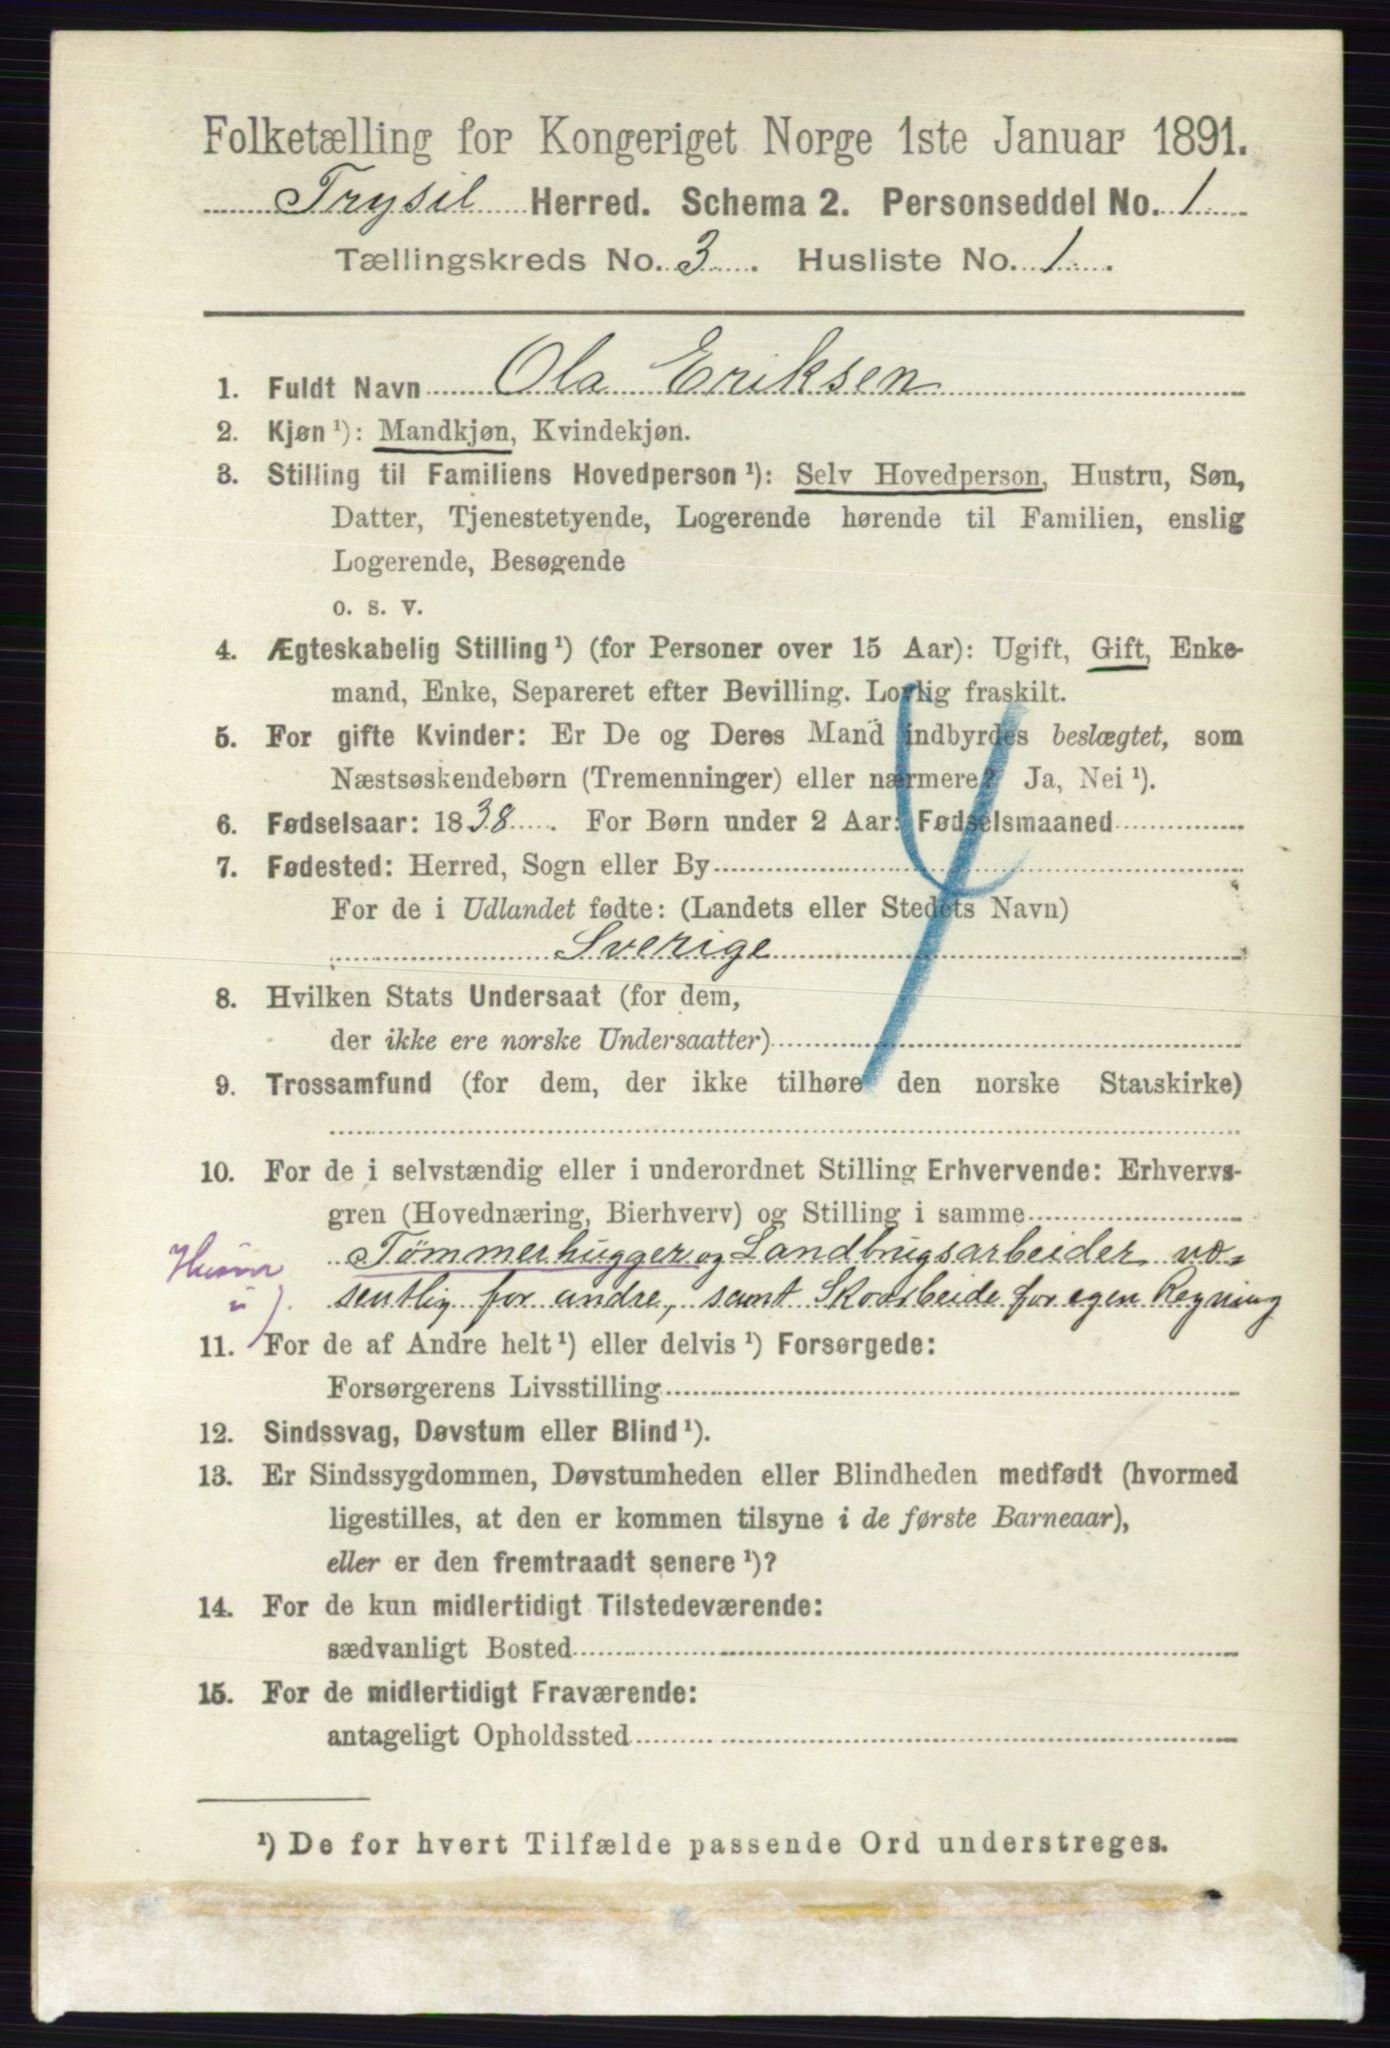 Folketælling for Kongeriget Norge 1ste Januar 1891.
Trysil Herred. Schema 2. Personseddel No. 1
Tællingskreds No. 3. Husliste No. 1.
1. Fuldt Navn Ola Eriksen
2. Kjøn ¹): Mandkjøn, Kvindekjøn.
3. Stilling til Familiens Hovedperson ¹): Selv Hovedperson, Hustru, Søn,
Datter, Tjenestetyende, Logerende hørende til Familien, enslig
Logerende, Besøgende
o. s. v.
4. Ægteskabelig Stilling ¹) (for Personer over 15 Aar): Ugift, Gift, Enke-
mand, Enke, Separeret efter Bevilling. Lovlig fraskilt.
5. For gifte Kvinder: Er De og Deres Mand indbyrdes beslægtet, som
Næstsøskendebørn (Tremenninger) eller nærmere? Ja, Nei ¹).
6. Fødselsaar: 1838. For Børn under 2 Aar: Fødselsmaaned
7. Fødested: Herred, Sogn eller By
For de i Udlandet fødte: (Landets eller Stedets Navn)
Sverige
8. Hvilken Stats Undersaat (for dem,
der ikke ere norske Undersaatter)
9. Trossamfund (for dem, der ikke tilhøre den norske Statskirke)
10. For de i selvstændig eller i underordnet Stilling Erhvervende: Erhvervs-
gren (Hovednæring, Bierhverv) og Stilling i samme
Tømmerhugger og Landbrugsarbeider væ-
sentlig for andre, samt Skoarbeide for egen Regning
11. For de af Andre helt ¹) eller delvis ¹) Forsørgede:
Forsørgerens Livsstilling
12. Sindssvag, Døvstum eller Blind ¹).
13. Er Sindssygdommen, Døvstumheden eller Blindheden medfødt (hvormed
ligestilles, at den er kommen tilsyne i de første Barneaar),
eller er den fremtraadt senere ¹)?
14. For de kun midlertidigt Tilstedeværende:
sædvanligt Bosted
15. For de midlertidigt Fraværende:
antageligt Opholdssted
¹) De for hvert Tilfælde passende Ord understreges.